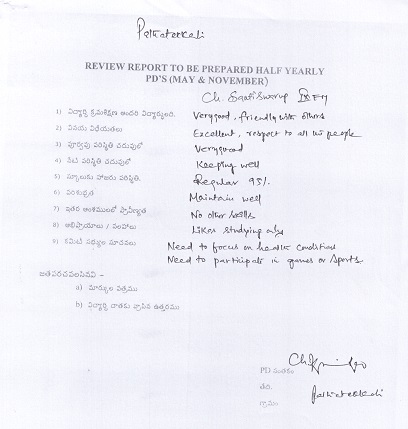 Pathatekkali
REVIEW REPORT TO BE PREPARED HALF YEARLY
PD'S (MAY & NOVEMBER)
Ch. Saatiswarup IX EM
1) విద్యార్థి క్రమశిక్షణ ఇందలి విద్యార్థులది. Very good, friendly with others
2) వినయ విధేయతలు Excellent, respect to all us people
3) పూర్వపు పరిస్థితి చదువులో Very good
4) నేటి పరిస్థితి చదువులో Keeping well
5) స్కూలుకు హాజరు పరిస్థితి. Regular 95%
6) పరిశుభ్రత Maintain well
7) ఇతర అంశములలో ప్రావీణ్యత No other skills
8) అభిప్రాయాలు / సలహాలు Likes studying only
9) కమిటీ సభ్యుల సూచనలు Need to focus on health condition
Need to participate in games or sports
జతపరచవలసినవి -
a) మార్కుల పత్రము
b) విద్యార్థి దాతకు వ్రాసిన ఉత్తరము
PD సంతకం
తేది.
గ్రామం. Pathatekkali